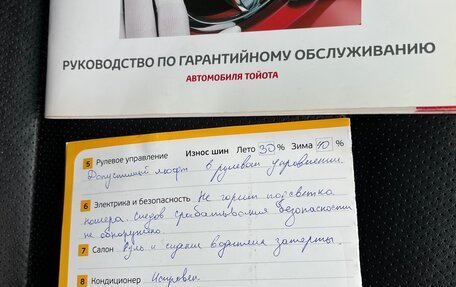 РУКОВОДСТВО ПО ГАРАНТИЙНОМУ ОБСЛУЖИВАНИЮ
АВТОМОБИЛЯ ТОЙОТА
5 Рулевое управление Износ шин Лето 30 % Зима 40 %
Допустимый люфт в рулевом управлении.
6 Электрика и безопасность Не горит подсветка
номера. Следов срабатывания безопасности
не обнаружено.
7 Салон Руль и сидение водителя затерты.
8 Кондиционер Исправен